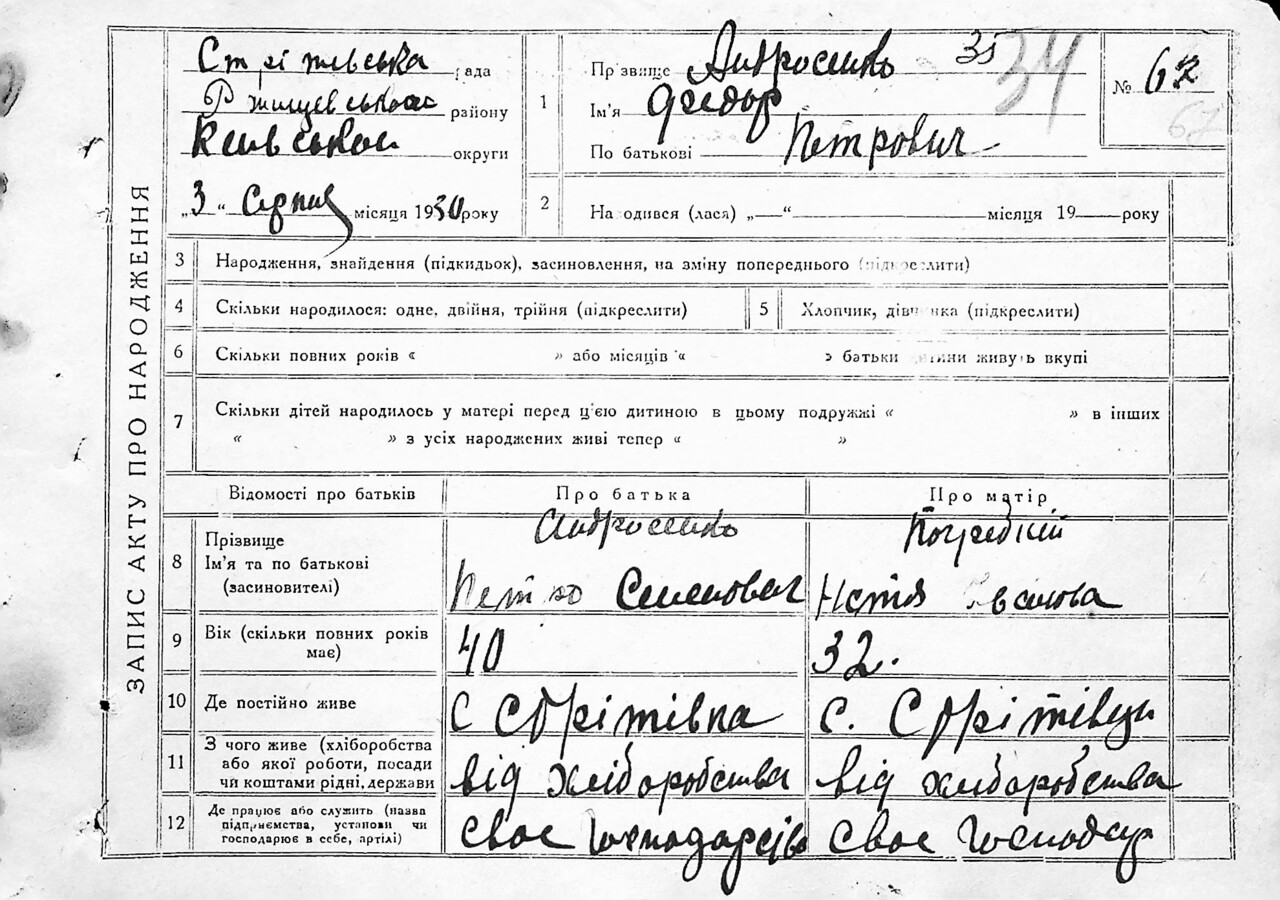 ЗАПИС АКТУ ПРО НАРОДЖЕННЯ
Стрітівська рада
Ржищевської району
Київської округи
„3“ Серпня місяця 1930 року
1
Прізвище Андросенко 35 34
Ім’я Федор
По батькові Петрович
№ 67
67
2 Народився (лася) „—“ місяця 19— року
3 Народження, знайдення (підкидьок), засиновлення, на зміну попереднього (підкреслити)
4 Скільки народилося: одне, двійня, трійня (підкреслити)
5 Хлопчик, дівчинка (підкреслити)
6 Скільки повних років « » або місяців « » батьки дитини живуть вкупі
7 Скільки дітей народилось у матері перед ц’єю дитиною в цьому подружжі « » в інших
« » з усіх народжених живі тепер « »
Відомості про батьків Про батька Про матір
8 Прізвище
Ім’я та по батькові
(засиновителі)
Андросенко
Петро Семенович
Настя Іванова
9 Вік (скільки повних років
має)
40
32.
10 Де постійно живе
с Стрітівка
с. Стрітівці
11 З чого живе (хліборобства
або якої роботи, посади
чи коштами рідні, держави
від хліборобства
від хліборобства
12 Де працює або служить (назва
підприємства, установи чи
господарює в себе, артілі)
своє господарство
своє господар